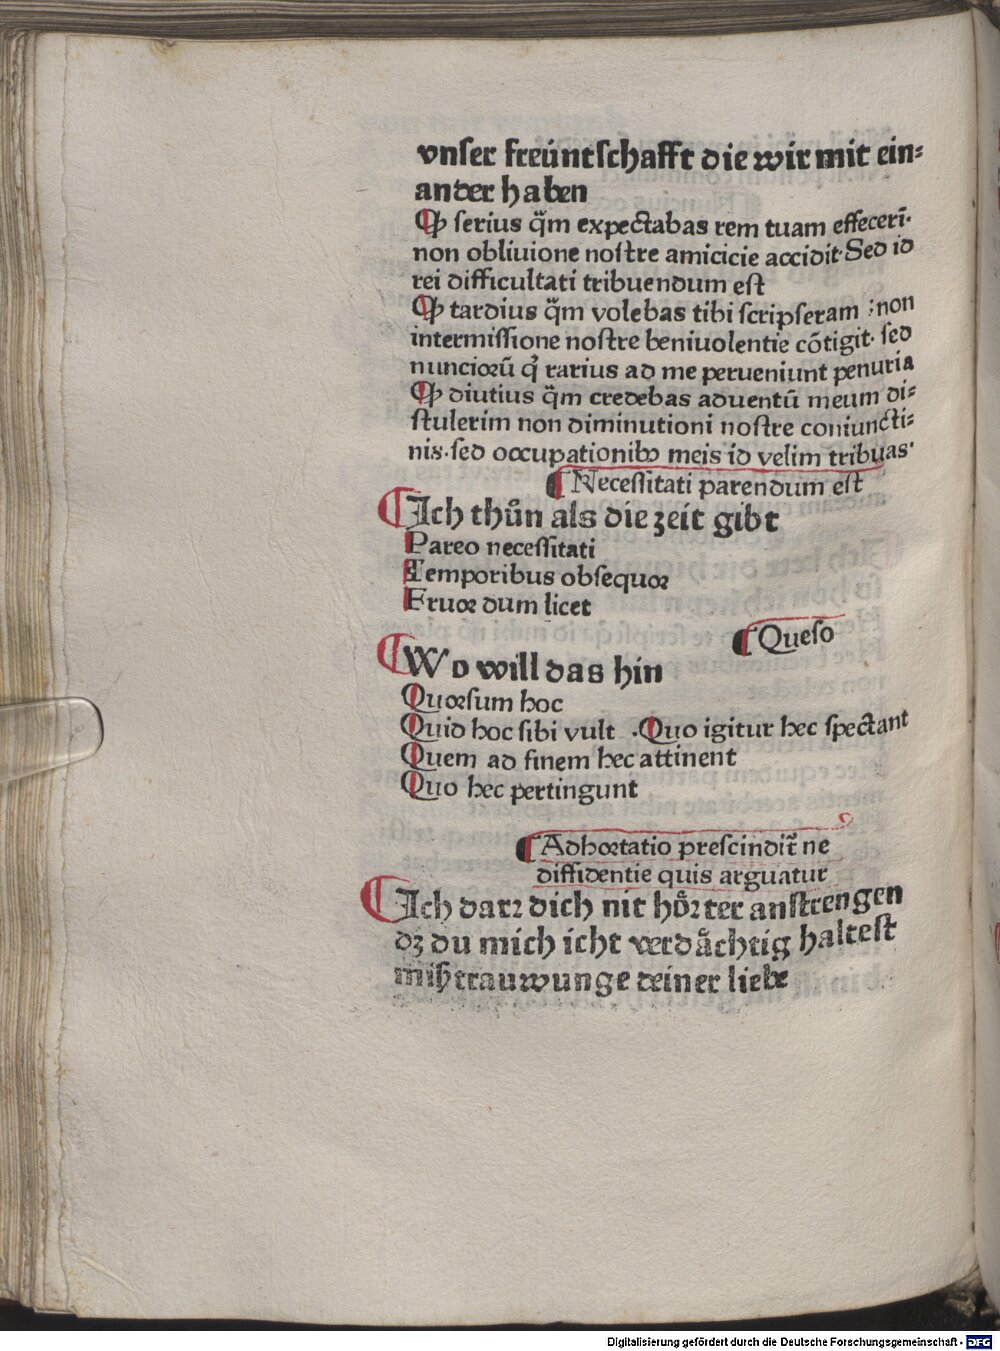 vnser freúntschafft die wir mit ein⸗
ander haben
Ꝙ serius q̈m expectabas rem tuam effecerī·
non obliuione nostre amicicie accidit· Sed id
rei difficultati tribuendum est
Ꝙ tardius q̈m volebas tibi scripseram : non
intermissione nostre beniuolentie cōtigit· sed
nuncioꝛū qͥ rarius ad me perueniunt penuria
Ꝙ diutius q̈m credebas aduentū meum di⸗
stulerim non diminutioni nostre coniuncti⸗
nis· sed occupationibꝰ meis id velim tribuas·
¶ Necessitati parendum est
¶ Ich thůn als die zeit gibt
Pareo necessitati
Temporibus obsequoꝛ
Fruoꝛ dum licet
¶ Queso
¶ Wo will das hin
Quoꝛsum hoc
Quid hoc sibi vult ·Quo igitur hec spectant
Quem ad finem hec attinent
Quo hec pertingunt
¶ Adhoꝛtatio prescindit̄ ne
diffidentie quis arguatur
¶ Ich darꝛ dich nit hoͤꝛter anstrengen
dz du mich icht verdaͤchtig haltest
mißtrauwunge deiner liebe
Digitalisierung gefördert durch die Deutsche Forschungsgemeinschaft - DFG